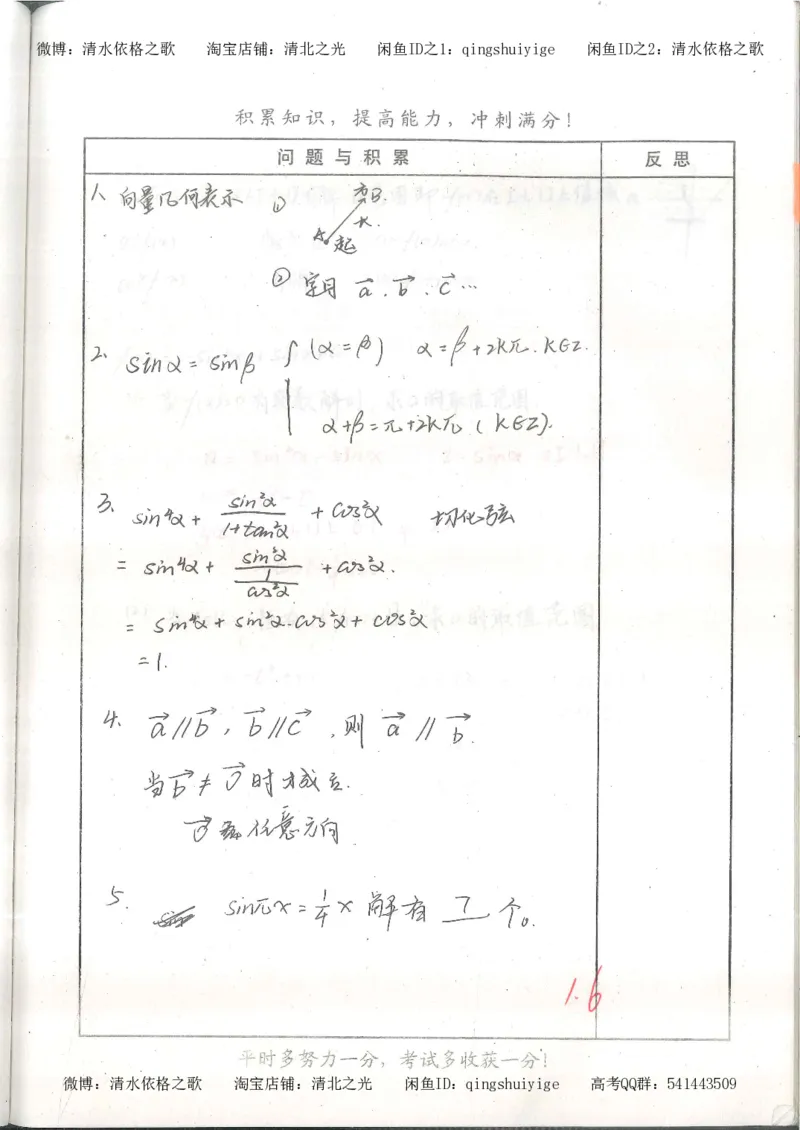 微博：清水依格之歌 淘宝店铺：清北之光 闲鱼ID之1：qingshuiyige 闲鱼ID之2：清水依格之歌
积累知识，提高能力，冲刺满分！
问题与积累 反思
1. 向量几何表示 ①
起
② 字母 a⃗. b⃗. c⃗…
2. sinα = sinβ { (α=β) α=β+2kπ. k∈Z.
α+β=π+2kπ (k∈Z).
3. sin⁴α + sin²α/(1+tan²α) + cos²α 切化弦
= sin⁴α + sin²α/(1/cos²α) + cos²α.
= sin⁴α + sin²α·cos²α + cos²α
=1.
4. a⃗//b⃗, b⃗//c⃗, 则 a⃗ // b⃗.
当b⃗≠0⃗时才成立.
0⃗ 任意方向
5. sinπx = 1/4 x 解有 7 个。
1.6
平时多努力一分，考试多收获一分！
微博：清水依格之歌 淘宝店铺：清北之光 闲鱼ID：qingshuiyige 高考QQ群：541443509